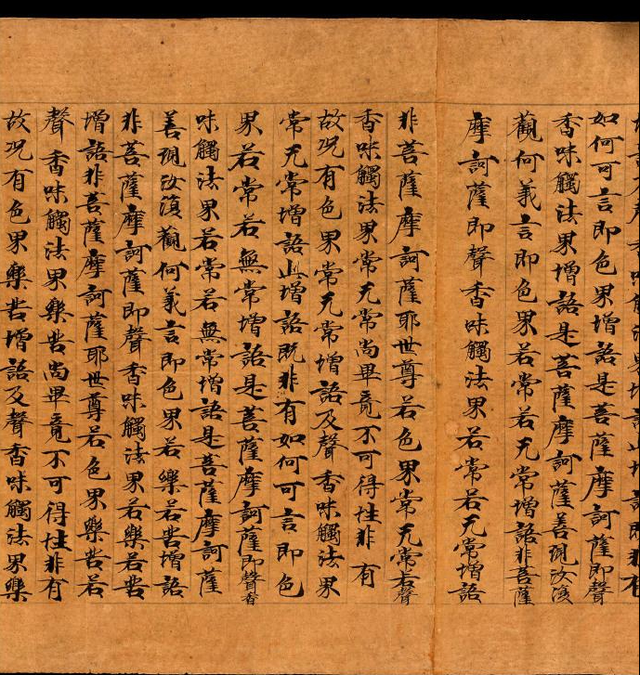 如何可言即色界增語是菩薩摩訶薩即聲
香味觸法界增語是菩薩摩訶薩善現汝復
觀何義言即色界若常若无常增語非菩薩
摩訶薩即聲香味觸法界若常若无常增語
非菩薩摩訶薩耶世尊若色界常无常若聲
香味觸法界常无常尚畢竟不可得性非有
故况有色界常无常增語及聲香味觸法界
常无常增語此增語既非有如何可言即色
界若常若無常增語是菩薩摩訶薩即聲香
味觸法界若常若無常增語是菩薩摩訶薩
善現汝復觀何義言即色界若樂若苦增語
非菩薩摩訶薩即聲香味觸法界若樂若苦
增語非菩薩摩訶薩耶世尊若色界樂苦若
聲香味觸法界樂苦尚畢竟不可得性非有
故况有色界樂苦增語及聲香味觸法界樂